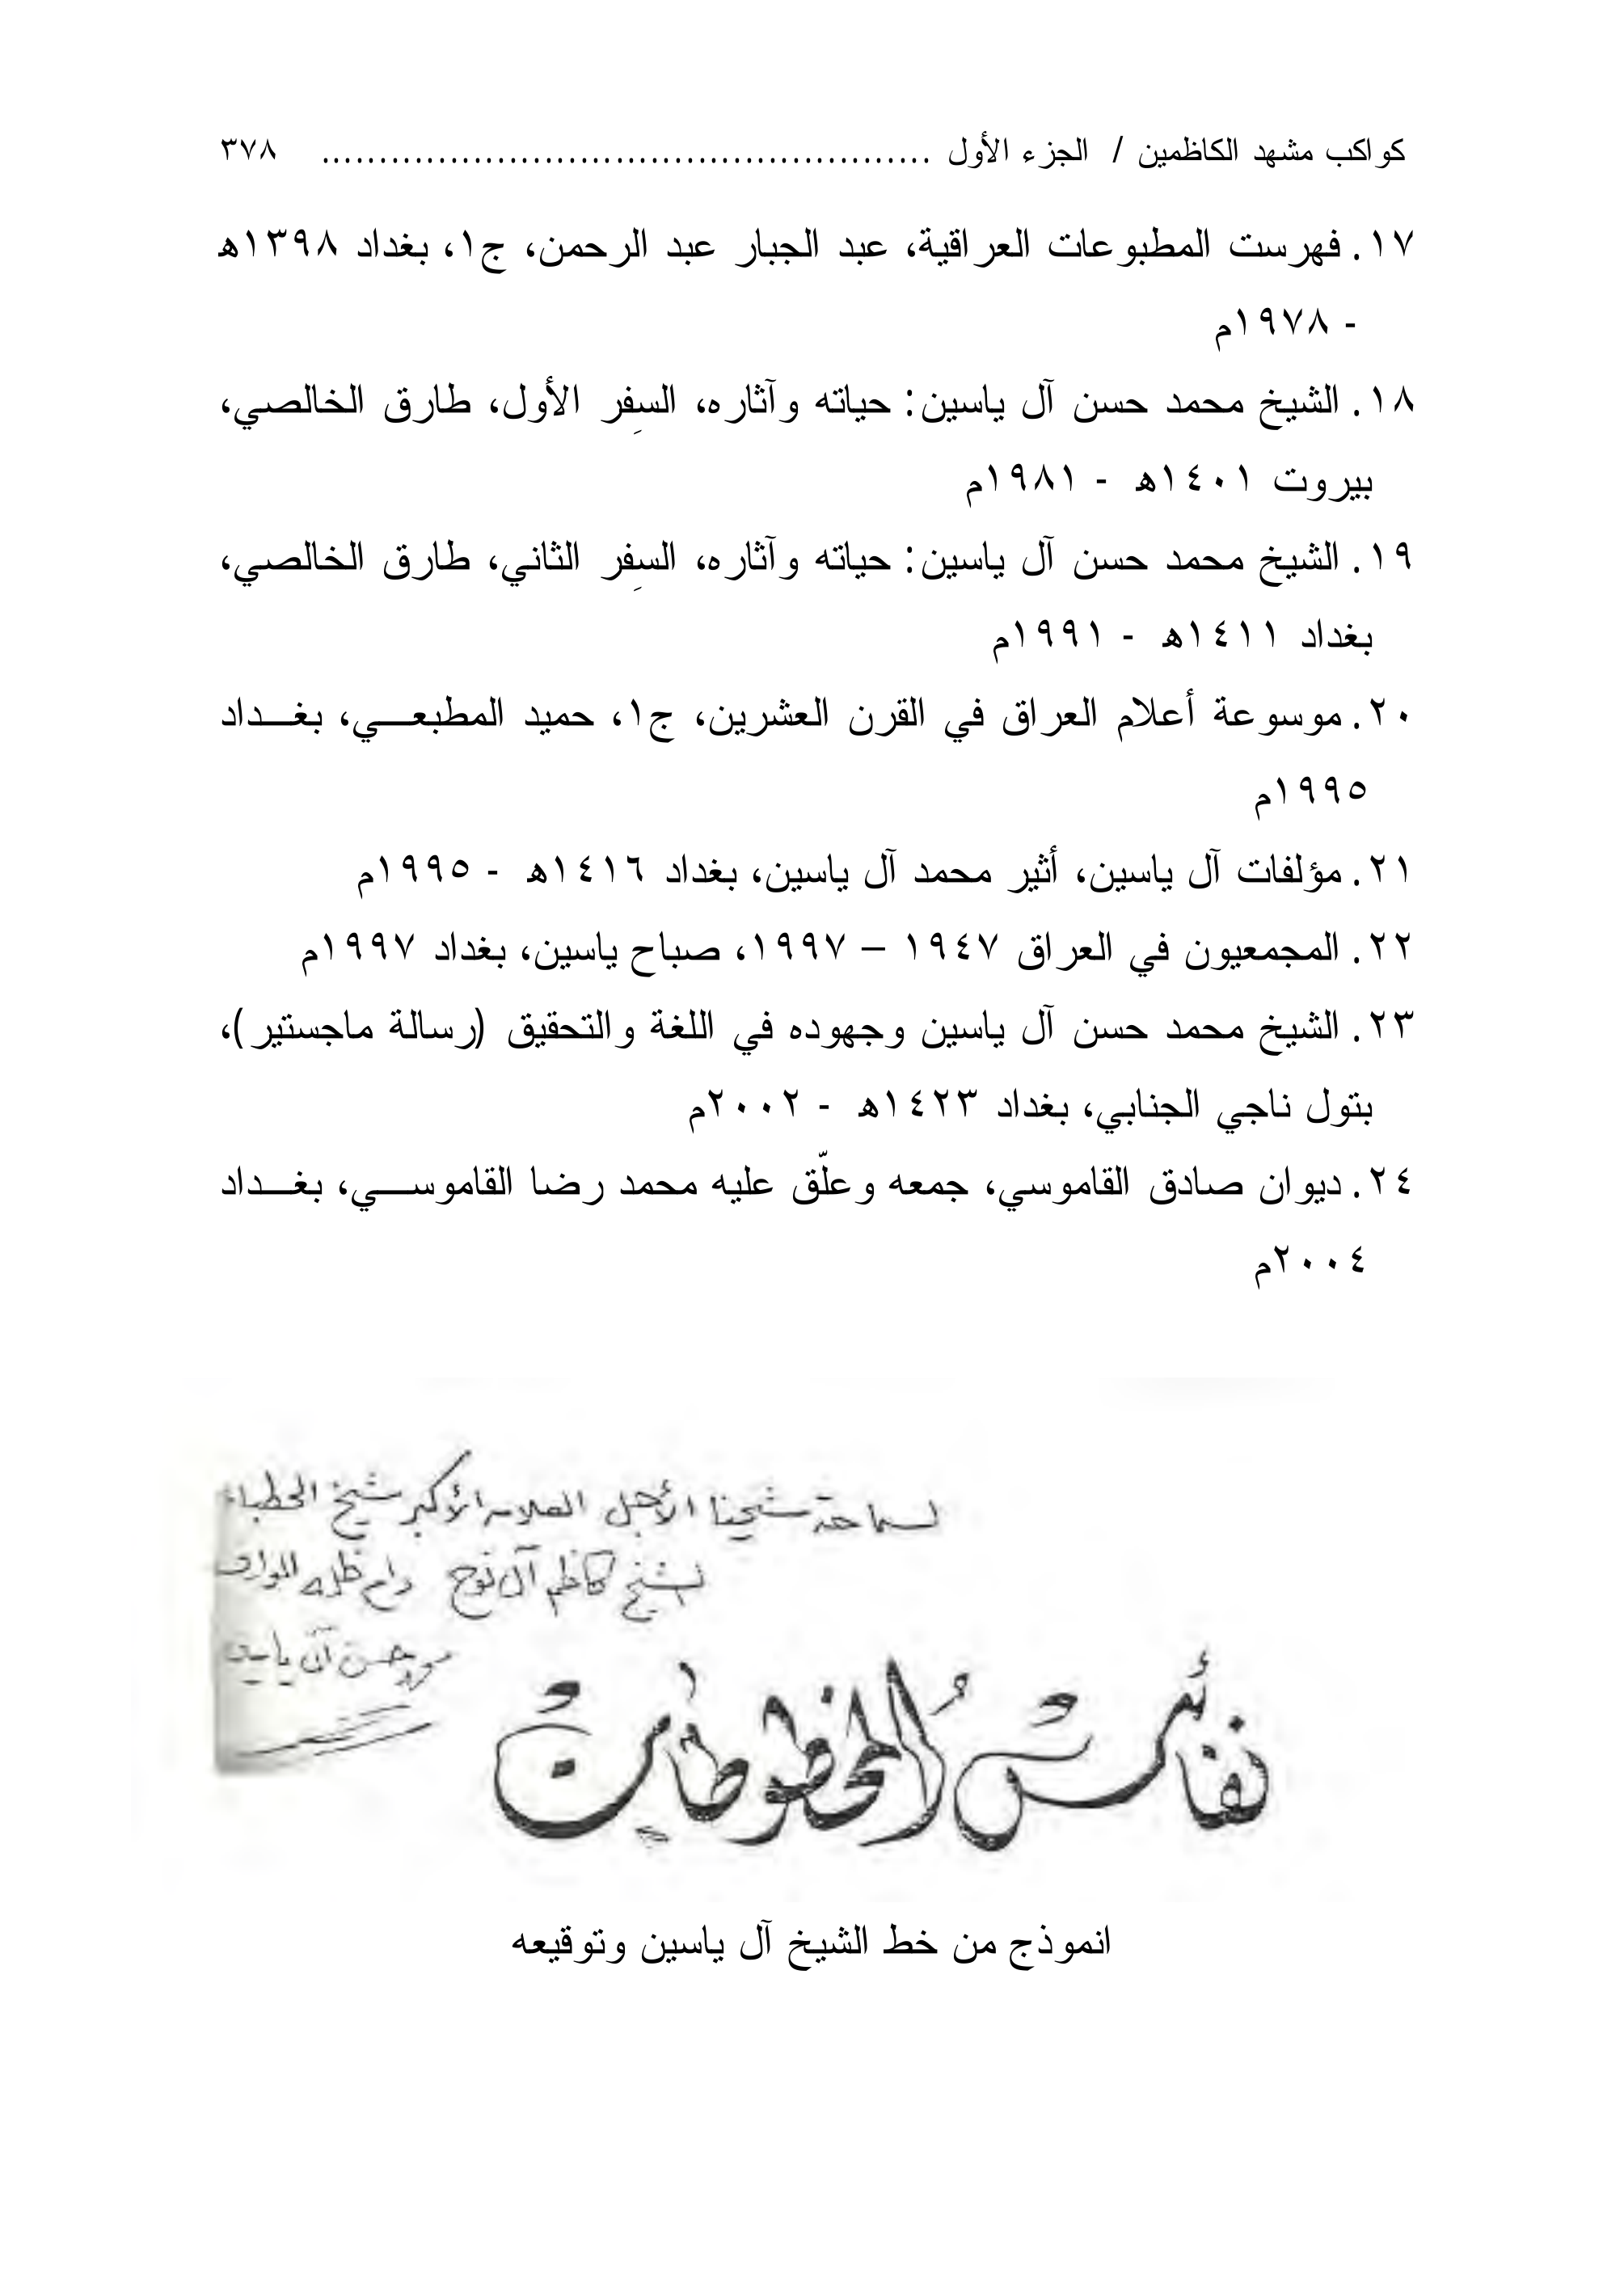 كواكب مشهد الكاظمين / الجزء الأول .................................................. ٣٧٨
١٧. فهرست المطبوعات العراقية، عبد الجبار عبد الرحمن، ج١، بغداد ١٣٩٨ه
- ١٩٧٨م
١٨. الشيخ محمد حسن آل ياسين: حياته وآثاره، السِفر الأول، طارق الخالصي،
بيروت ١٤٠١ه - ١٩٨١م
١٩. الشيخ محمد حسن آل ياسين: حياته وآثاره، السِفر الثاني، طارق الخالصي،
بغداد ١٤١١ه - ١٩٩١م
٢٠. موسوعة أعلام العراق في القرن العشرين، ج١، حميد المطبعـــي، بغـــداد
١٩٩٥م
٢١. مؤلفات آل ياسين، أثير محمد آل ياسين، بغداد ١٤١٦ه - ١٩٩٥م
٢٢. المجمعيون في العراق ١٩٤٧ – ١٩٩٧، صباح ياسين، بغداد ١٩٩٧م
٢٣. الشيخ محمد حسن آل ياسين وجهوده في اللغة والتحقيق (رسالة ماجستير)،
بتول ناجي الجنابي، بغداد ١٤٢٣ه - ٢٠٠٢م
٢٤. ديوان صادق القاموسي، جمعه وعلّق عليه محمد رضا القاموســـي، بغـــداد
٢٠٠٤م
لسماحة شيخنا الأجل العلامة الأكبر شيخ الخطباء
الشيخ كاظم آل نوح دام ظله الوارف
محمد حسن آل ياسين
نفائس المخطوطات
انموذج من خط الشيخ آل ياسين وتوقيعه